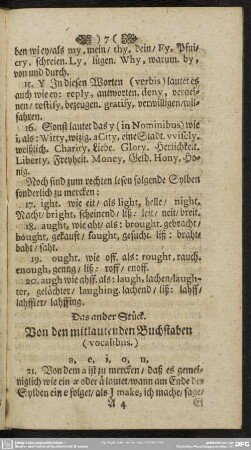 ( 7 )
ben wie y/als my, mein/ thy, dein/ Fy, Pfui/
cry, schreien. Ly, lügen. Why, warum. by,
von und durch.
15. Y In diesen Worten (verbis) lautet es
auch wie ey: reply, antworten. deny, vernei-
nen/ testify, bezeugen. gratify, verwilligen/will-
fahren.
16. Sonst lautet das y (in Nominibus) wie
i, als: Witty, witzig. a City, eine Stadt. vvisely,
weißlich. Charity, Liebe. Glory. Herlichkeit.
Liberty, Freyheit. Money, Geld. Hony, Ho-
nig.
Noch sind zum rechten lesen folgende Sylben
sonderlich zu mercken:
17. ight. wie eit/ als light, helle/ night,
Nacht/ bright, scheinend/ liß: leit/ neit/ breit.
18. aught, wie aht/ als: brought. gebracht/
bought, gekauft/ sought, gesucht. liß: braht/
baht/ saht.
19. ought. wie off. als: rought, rauch,
enough, genug/ liß: roff/ enoff.
20. augh wie ahff. als: laugh, lachen/ laugh-
ter, gelächter/ laughing. lachend/ liß: lahff/
lahffter/ lahffing.
Das ander Stück.
Von den mitlautenden Buchstaben
(vocalibus.)
a, e, i, o, n,
21. Von dem a ist zu mercken/ daß es gemei-
niglich wie ein æ oder ä lautet/wann am Ende der
Sylben ein e folget/ als I make, ich mache/ sage/
A 4